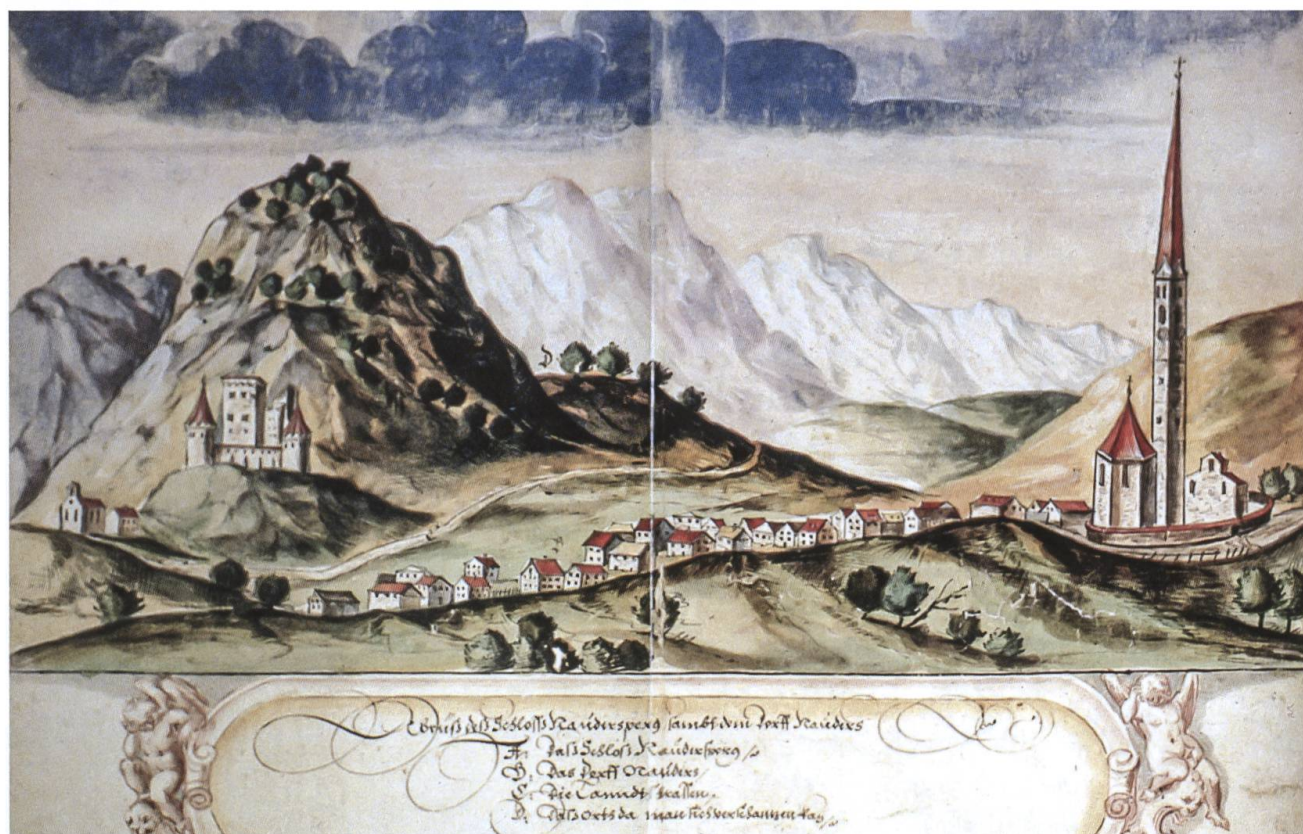 D
Abriß deß Schloß Naudersperg sambt dem Dorff Nauders
A. Daß Schloß Naudersperg
B. Das Dorff Nauders
C. Die Lanndt strassen.
D. Daß Orth da man sich